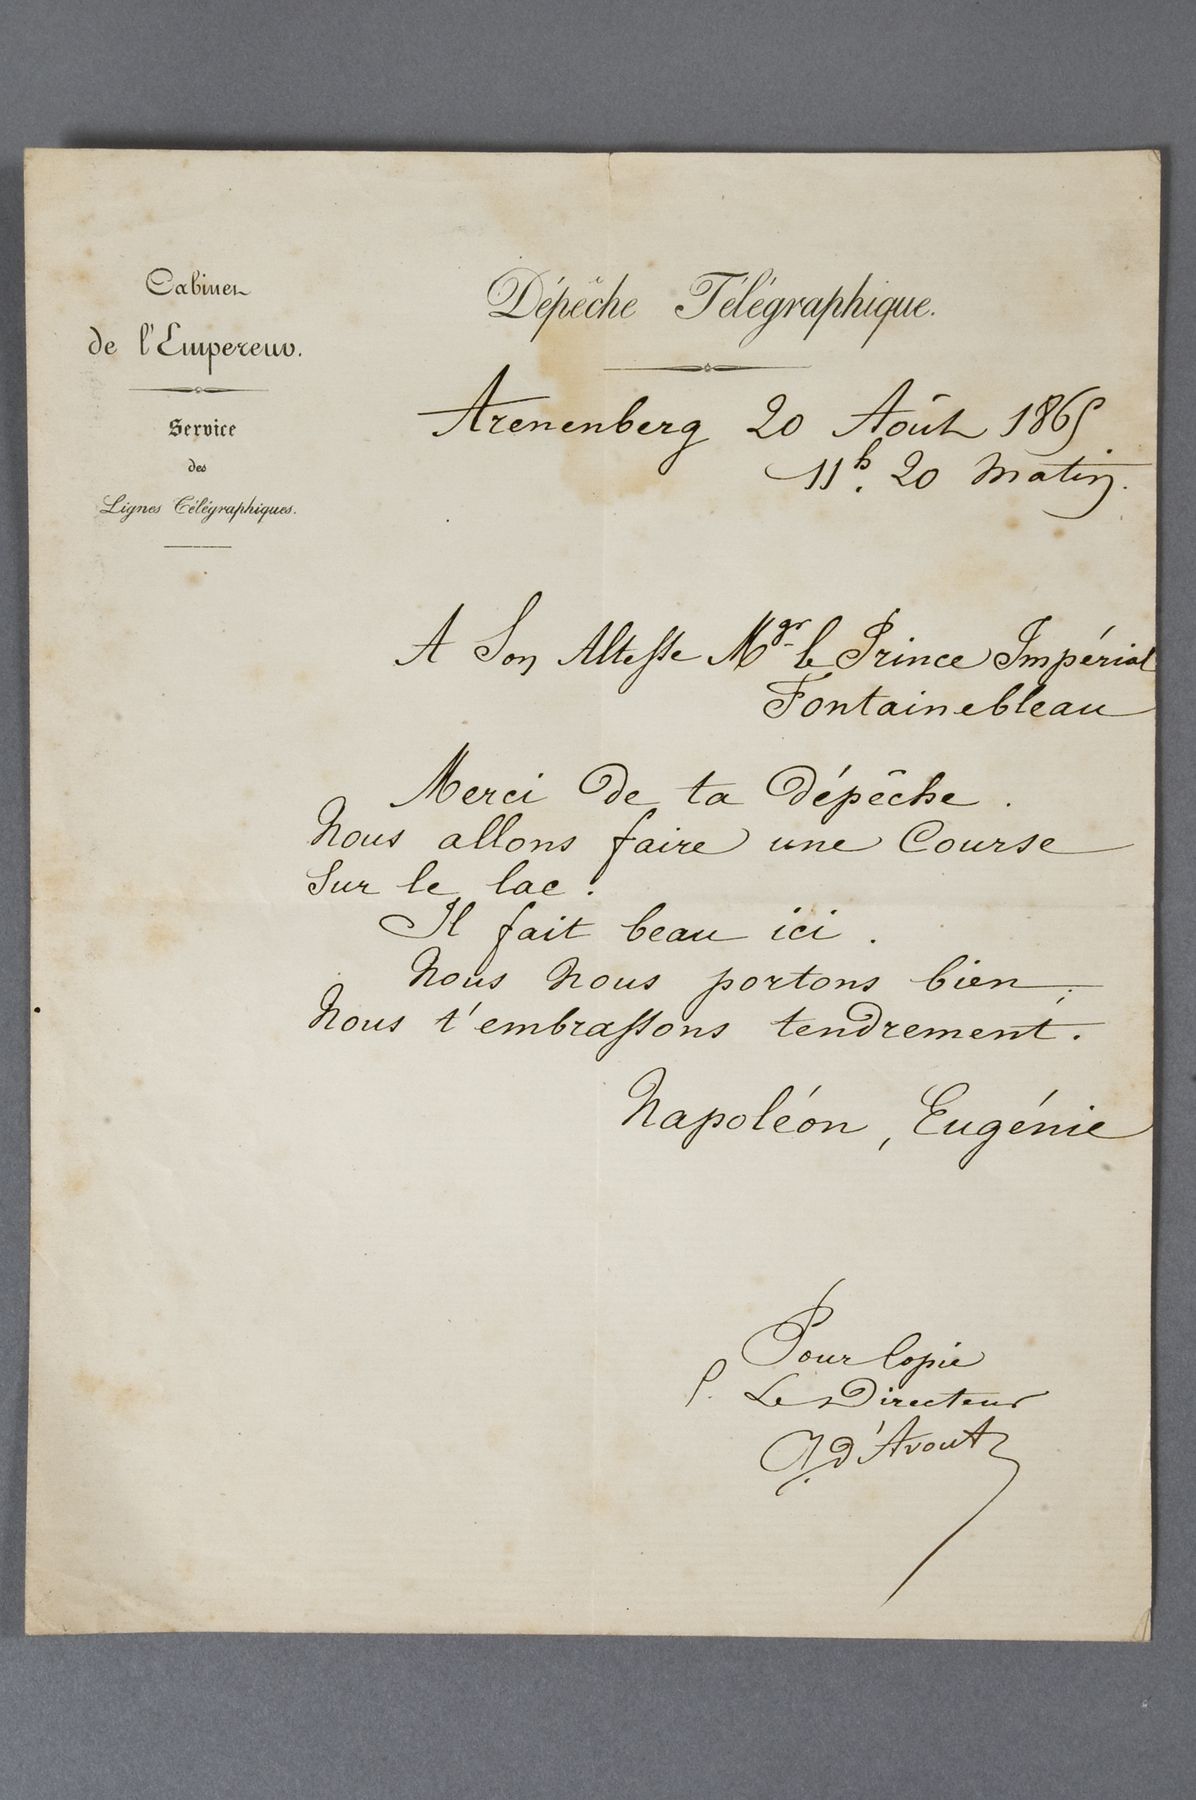 Cabinet
de l'Empereur.
Service
des
Lignes Télégraphiques.
Dépêche Télégraphique.
Arenenberg 20 Août 1865
11h. 20 Matin.
A Son Altesse Mgr le Prince Impérial
Fontainebleau
Merci de ta dépêche.
Nous allons faire une Course
Sur le lac.
Il fait beau ici.
Nous Nous portons bien.
Nous t'embrassons tendrement.
Napoléon, Eugénie
Pour Copie
P. Le Directeur
d'Avout